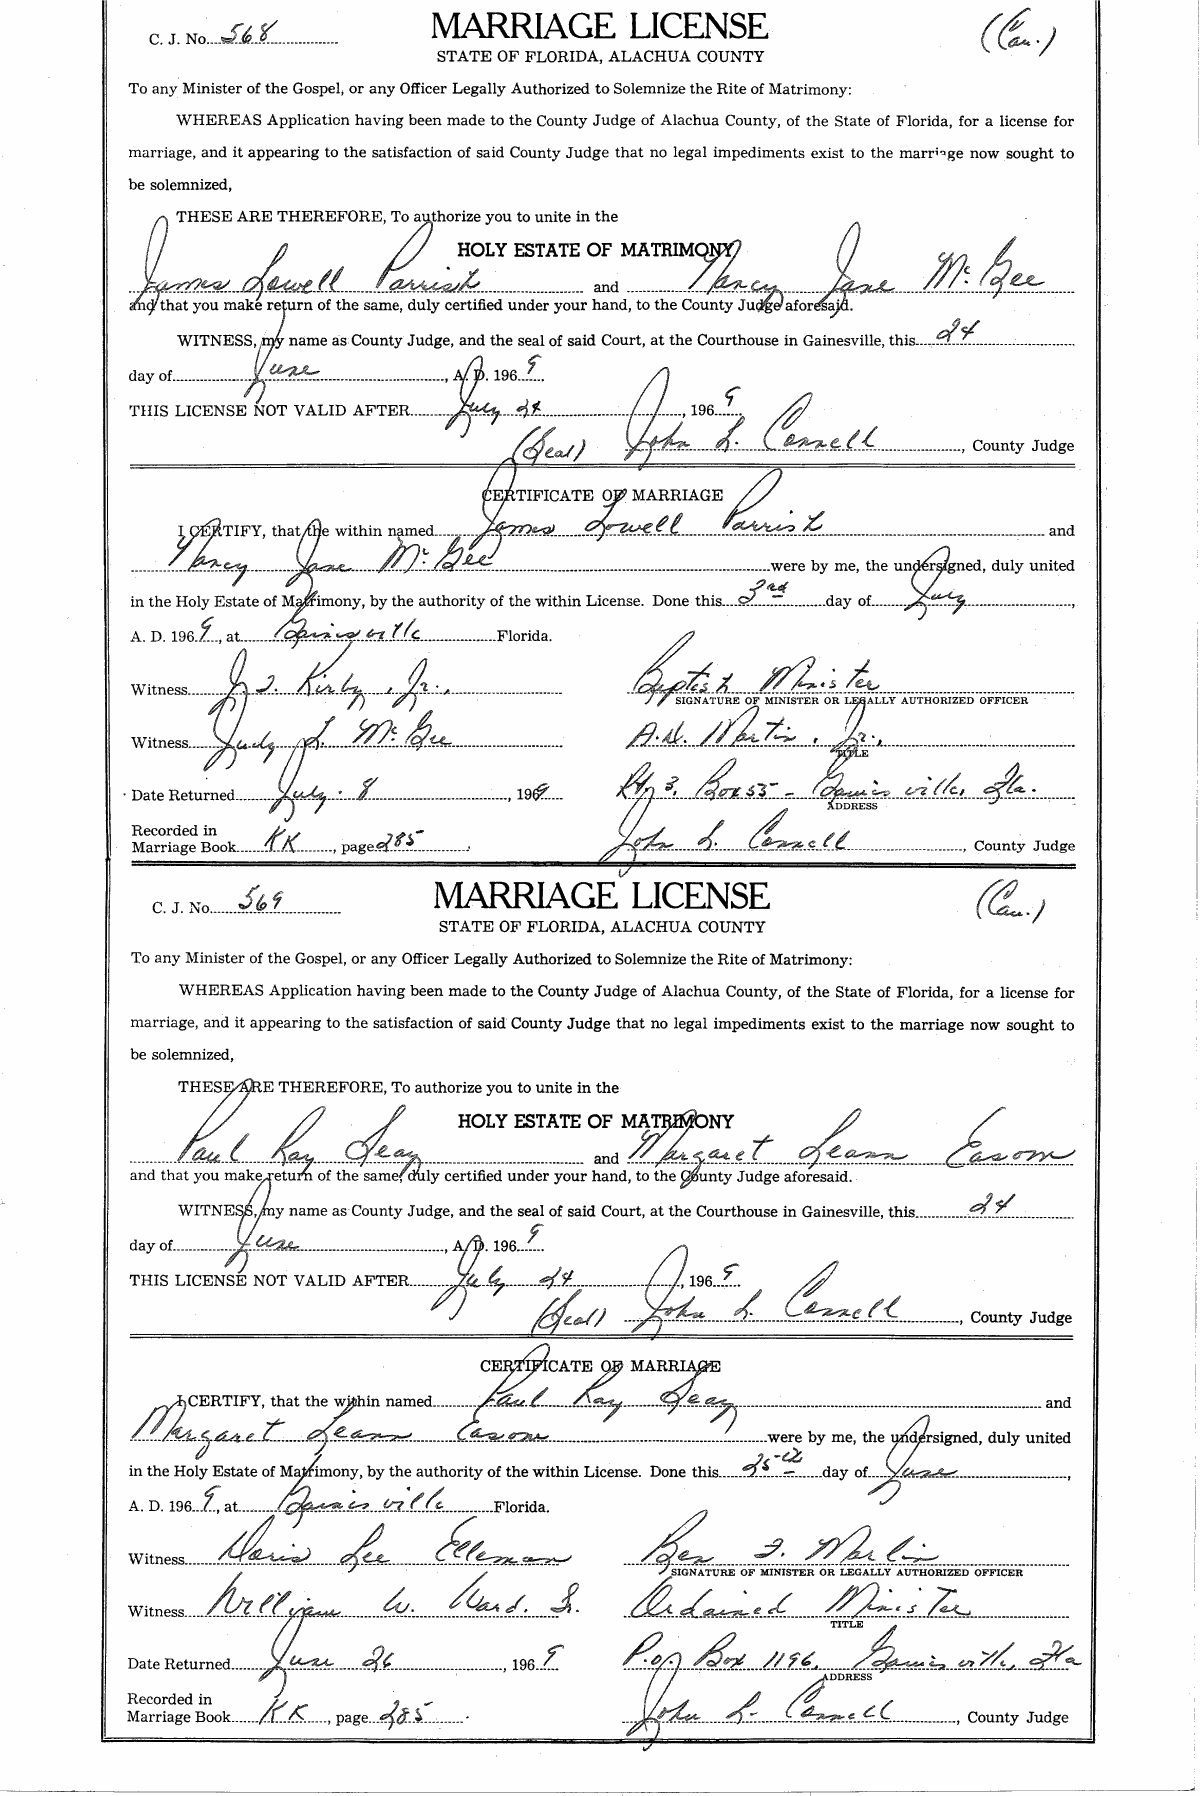 C. J. No. 568 MARRIAGE LICENSE (Cau.)
STATE OF FLORIDA, ALACHUA COUNTY
To any Minister of the Gospel, or any Officer Legally Authorized to Solemnize the Rite of Matrimony:
WHEREAS Application having been made to the County Judge of Alachua County, of the State of Florida, for a license for
marriage, and it appearing to the satisfaction of said County Judge that no legal impediments exist to the marriage now sought to
be solemnized,
THESE ARE THEREFORE, To authorize you to unite in the
HOLY ESTATE OF MATRIMONY
James Lowell Parrish and Nancy Jane McGee
and that you make return of the same, duly certified under your hand, to the County Judge aforesaid.
WITNESS, my name as County Judge, and the seal of said Court, at the Courthouse in Gainesville, this 24
day of June, A. D. 1969
THIS LICENSE NOT VALID AFTER July 24, 1969
(Seal) John L. Connell, County Judge
CERTIFICATE OF MARRIAGE
I CERTIFY, that the within named James Lowell Parrish and
Nancy Jane McGee were by me, the undersigned, duly united
in the Holy Estate of Matrimony, by the authority of the within License. Done this 3rd day of July,
A. D. 1969, at Gainesville Florida.
Witness J. T. Kirby, Jr., Baptist Minister
SIGNATURE OF MINISTER OR LEGALLY AUTHORIZED OFFICER
Witness Judy L. McGee A.D. Martin, Jr.,
TITLE
Date Returned July 8, 1969 Rt. 3, Box 55 - Gainesville, Fla.
ADDRESS
Recorded in
Marriage Book KK, page 285 John L. Connell, County Judge
C. J. No. 569 MARRIAGE LICENSE (Cau.)
STATE OF FLORIDA, ALACHUA COUNTY
To any Minister of the Gospel, or any Officer Legally Authorized to Solemnize the Rite of Matrimony:
WHEREAS Application having been made to the County Judge of Alachua County, of the State of Florida, for a license for
marriage, and it appearing to the satisfaction of said County Judge that no legal impediments exist to the marriage now sought to
be solemnized,
THESE ARE THEREFORE, To authorize you to unite in the
HOLY ESTATE OF MATRIMONY
Paul Ray Seay and Margaret Leann Easom
and that you make return of the same, duly certified under your hand, to the County Judge aforesaid.
WITNESS, my name as County Judge, and the seal of said Court, at the Courthouse in Gainesville, this 24
day of June, A. D. 1969
THIS LICENSE NOT VALID AFTER July 24, 1969
(Seal) John L. Connell, County Judge
CERTIFICATE OF MARRIAGE
I CERTIFY, that the within named Paul Ray Seay and
Margaret Leann Easom were by me, the undersigned, duly united
in the Holy Estate of Matrimony, by the authority of the within License. Done this 25th day of June,
A. D. 1969, at Gainesville Florida.
Witness Doris Lee Elleman Ben F. Martin
SIGNATURE OF MINISTER OR LEGALLY AUTHORIZED OFFICER
Witness William W. Ward. Sr. Ordained Minister
TITLE
Date Returned June 26, 1969 P.O. Box 1196, Gainesville, Fla
ADDRESS
Recorded in
Marriage Book KK, page 285 John L. Connell, County Judge